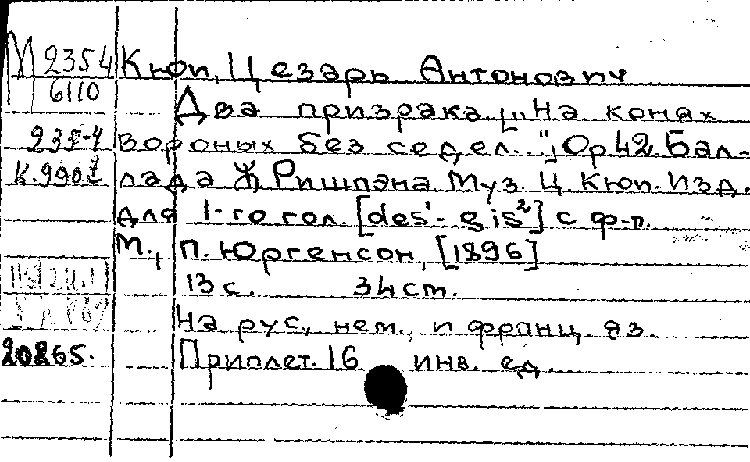 М 2354 Кюи, Цезарь Антонович
6110
Два призрака ["На конях
232-4 вороных без седел..."] Ор 42. Бал-
К.990 лада Ж. Ришпэна. Муз. Ц. Кюи. Изд.
для 1-го гол. [des'- gis²] с ф-п.
М., П. Юргенсон, [1896]
13 с. 34 см.
На рус., нем., и франц. яз.
20265. Приплет. 16 инв. ед.